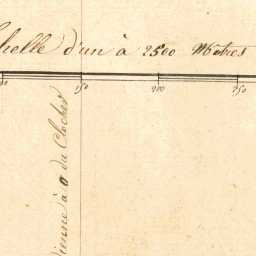 helle d'un à 2500 Mètres
150 200 250
dienne à 0 du Clocher